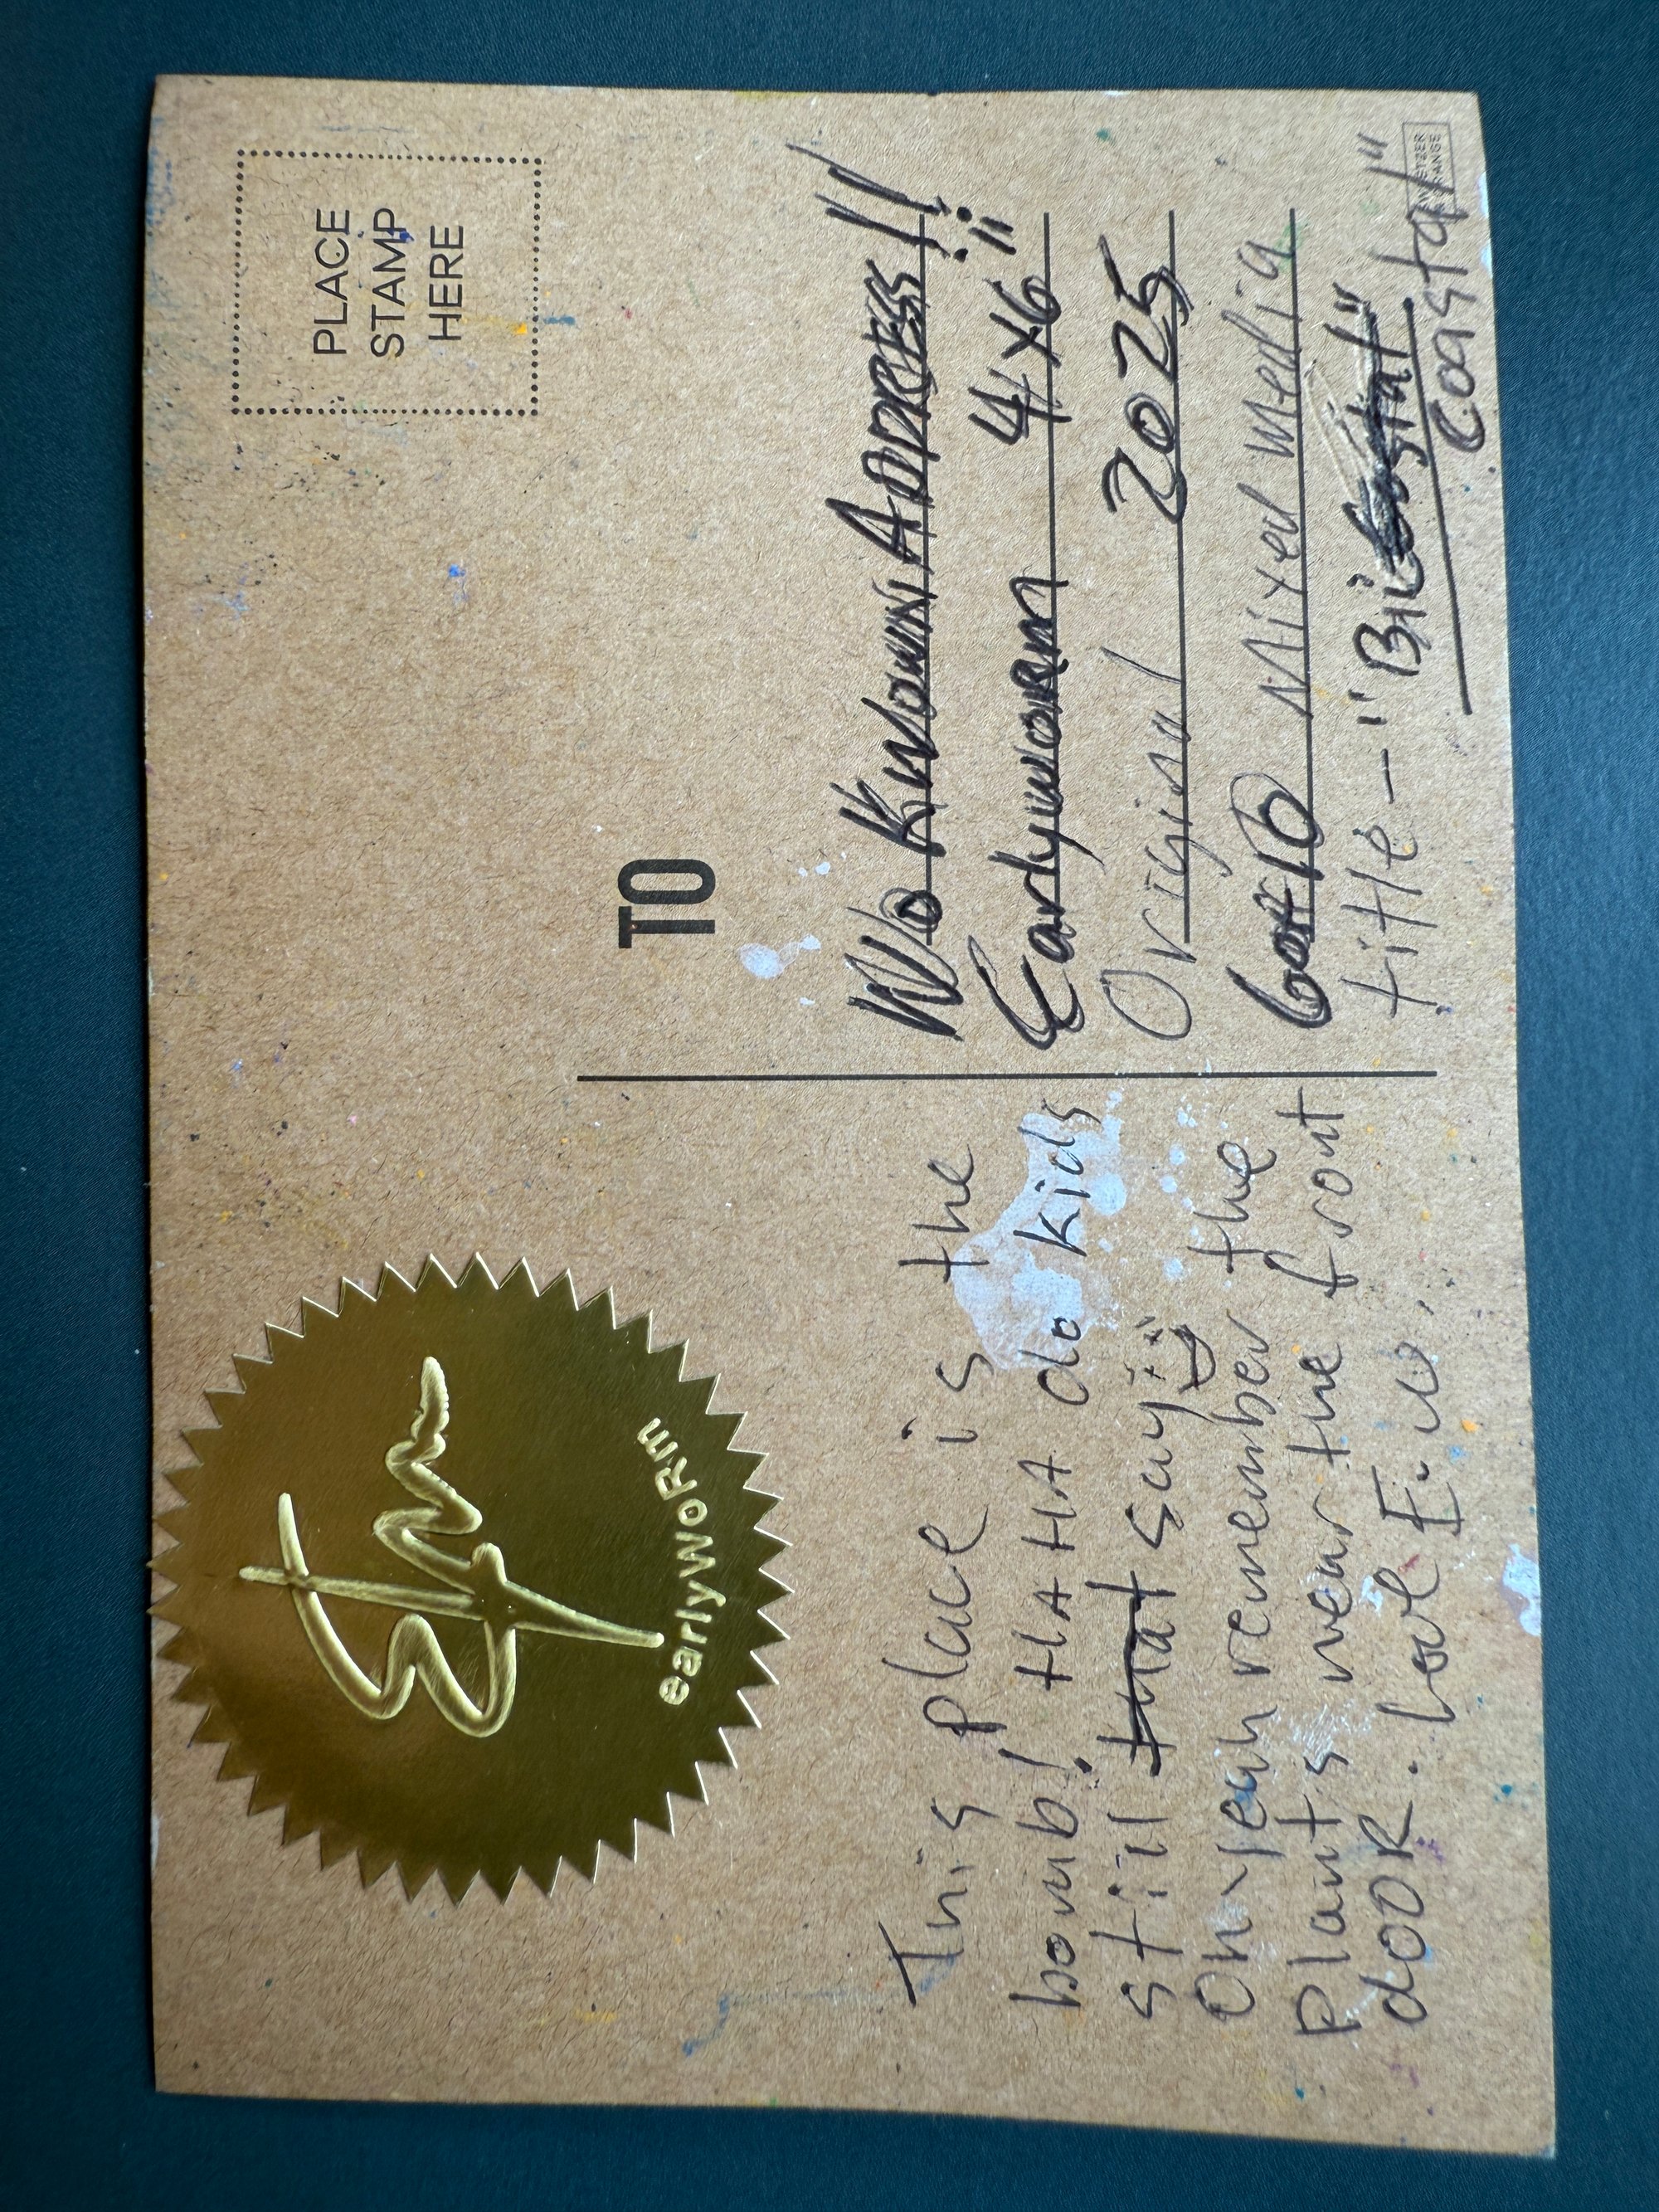 PLACE
STAMP
HERE
earlyWoRm
TO
This place is the
bomb! HA HA do kids
still that say
Oh yeah remember the
plants near the front
dOOR. love E.W.
No KNOWN ADDRESS!!
Earlyworm 4x6"
Original 2025
6 of 10 Mixed media
title - "Bi
Coastal"